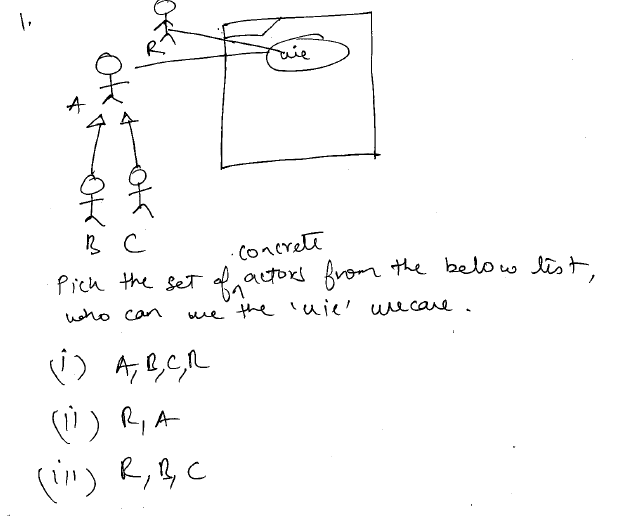 1.
R
uie
A
B C
concrete
Pick the set of actors from the below list,
who can use the 'uie' usecase.
(i) A, B, C, R
(ii) R, A
(iii) R, B, C